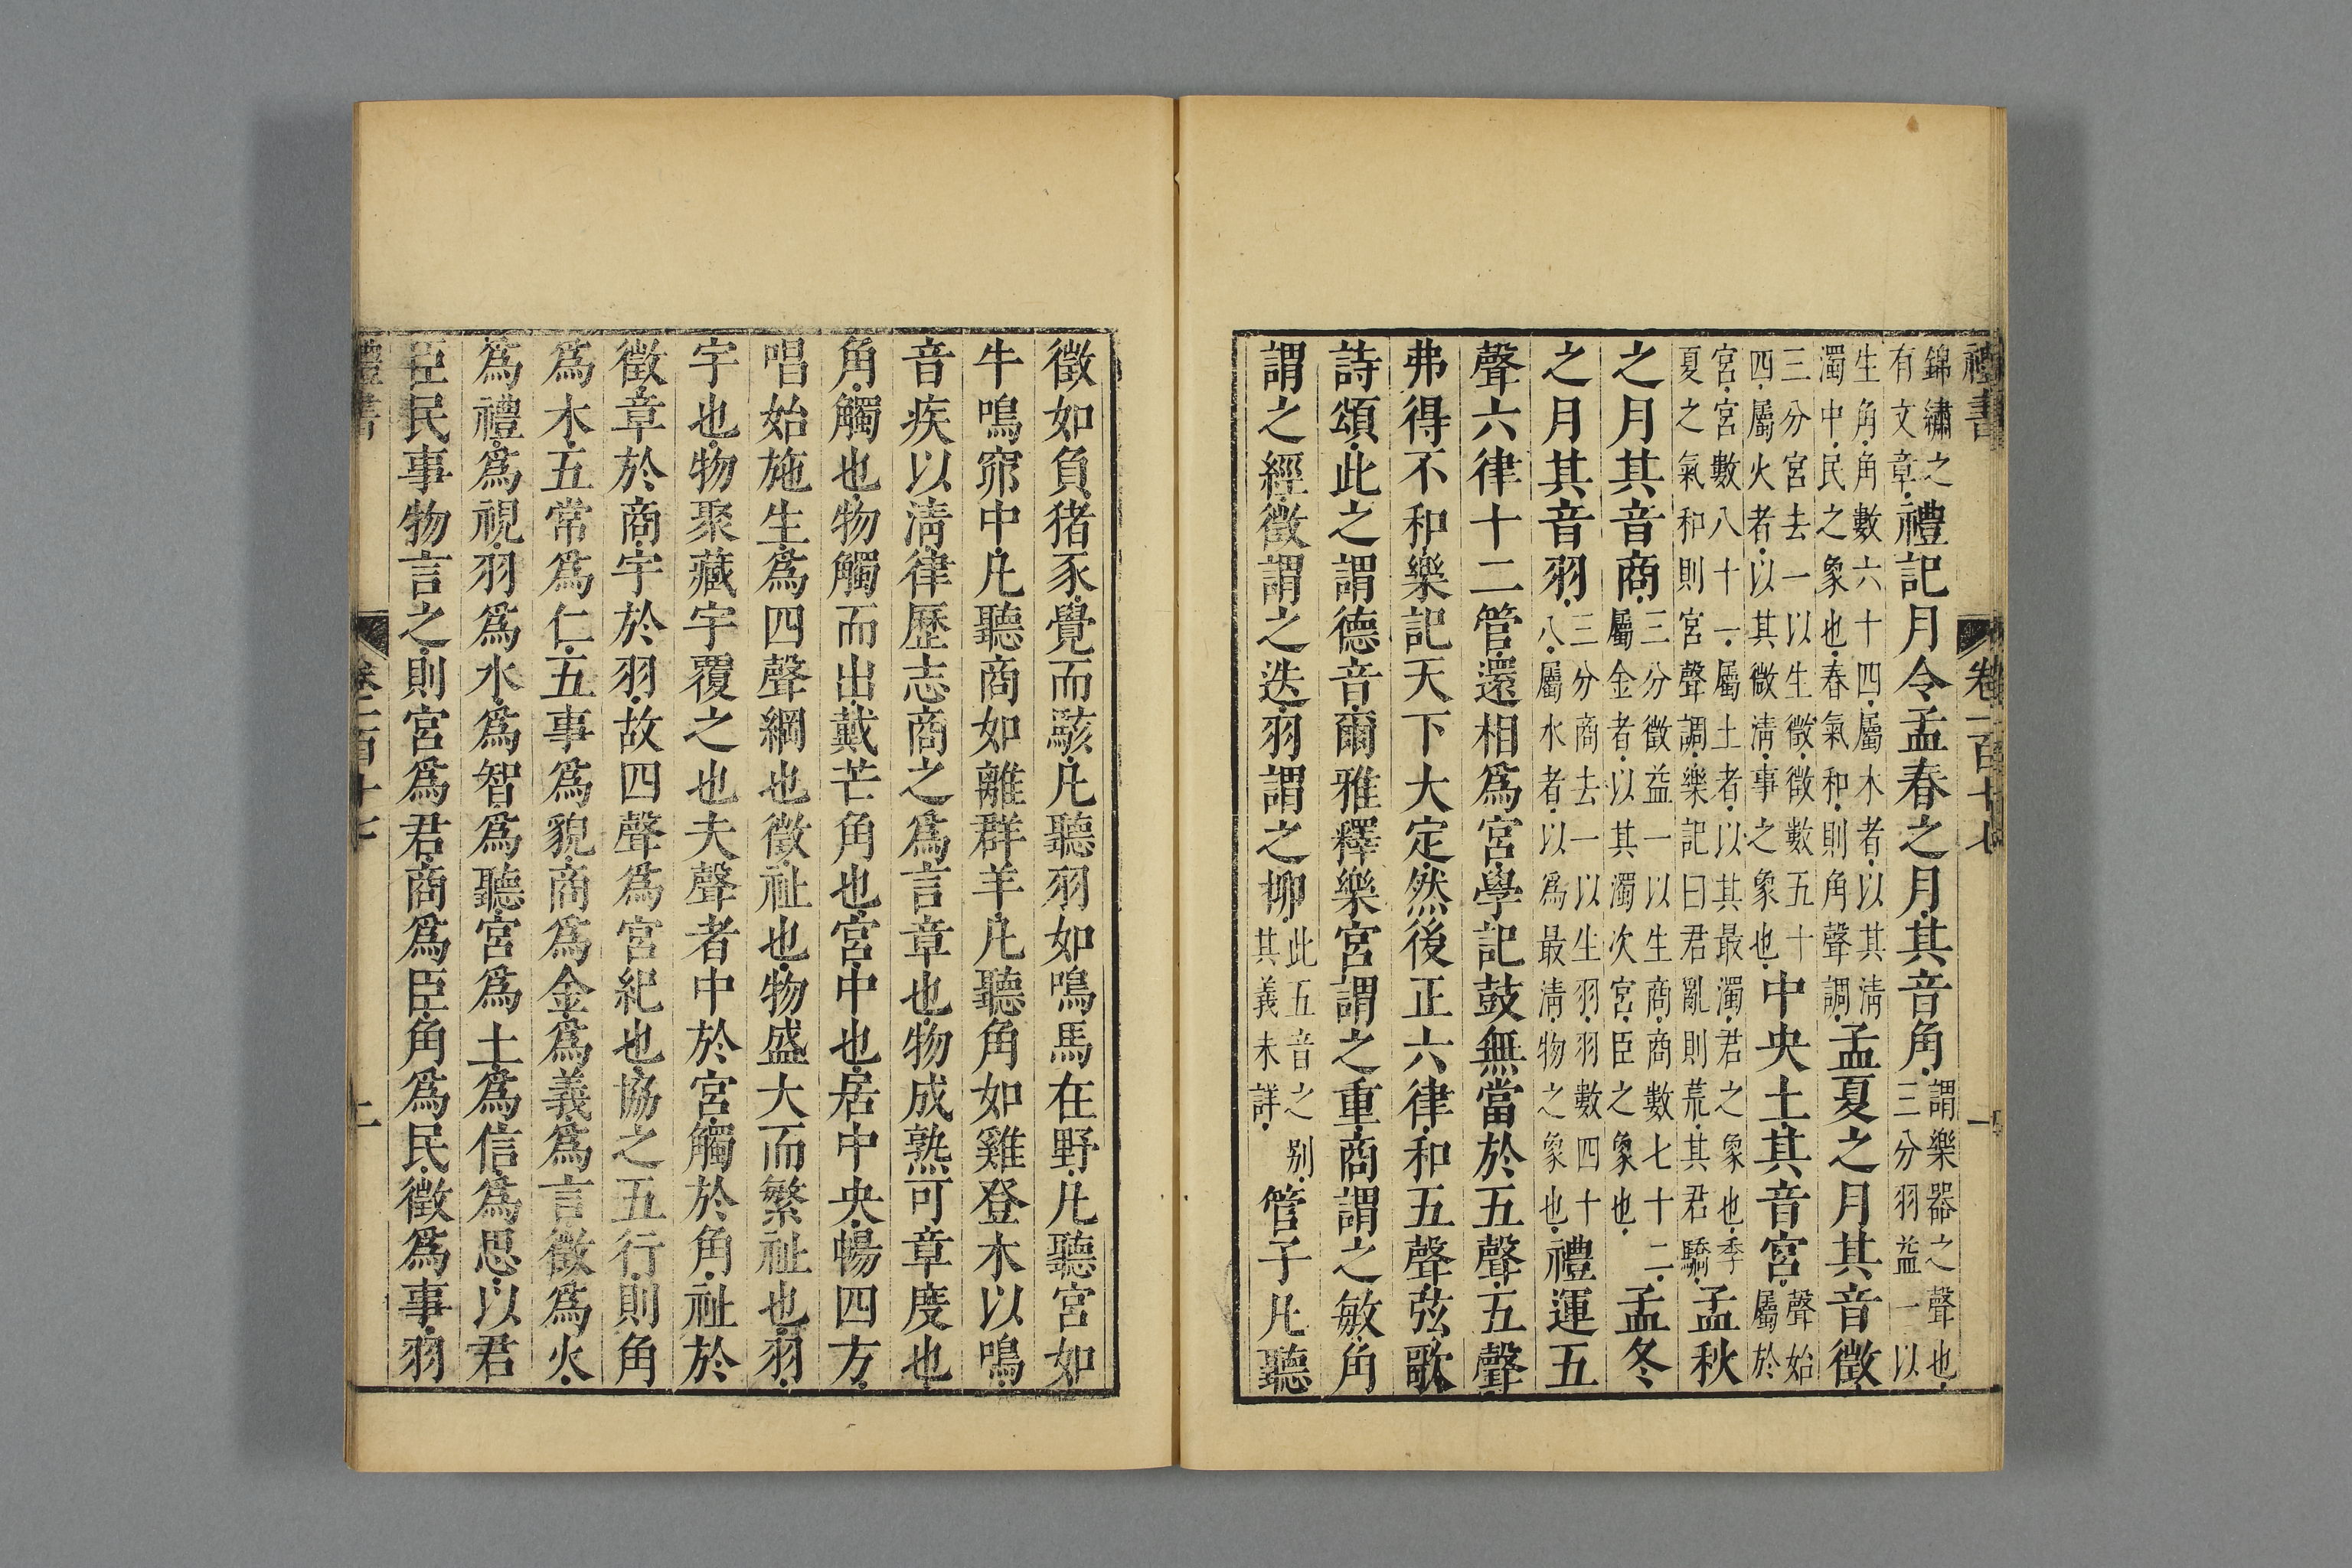 禮書 卷一百十七 一
錦繡之有文章禮記月令孟春之月其音角謂樂器之聲也三分羽益一以
生角角數六十四屬木者以其淸濁中民之象也春氣和則角聲調孟夏之月其音徵
三分宮去一以生徵徵數五十四屬火者以其微淸事之象也中央土其音宮聲始屬於
宮宮數八十一屬土者以其最濁君之象也季夏之氣和則宮聲調樂記曰君亂則荒其君驕孟秋
之月其音商三分徵益一以生商商數七十二屬金者以其濁次宮臣之象也孟冬
之月其音羽三分商去一以生羽羽數四十八屬水者以爲最淸物之象也禮運五
聲六律十二管還相爲宮學記鼓無當於五聲五聲
弗得不和樂記天下大定然後正六律和五聲弦歌
詩頌此之謂德音爾雅釋樂宮謂之重商謂之敏角
謂之經徵謂之迭羽謂之柳此五音之别其義未詳管子凡聽
徵如負猪豕覺而駭凡聽羽如鳴馬在野凡聽宮如
牛鳴窌中凡聽商如離群羊凡聽角如雞登木以鳴
音疾以淸律歷志商之爲言章也物成熟可章度也
角觸也物觸而出戴芒角也宮中也居中央暢四方
唱始施生爲四聲綱也徵祉也物盛大而繁祉也羽
宇也物聚藏宇覆之也夫聲者中於宮觸於角祉於
徵章於商宇於羽故四聲爲宮紀也協之五行則角
爲木五常爲仁五事爲貌商爲金爲義爲言徵爲火
爲禮爲視羽爲水爲智爲聽宮爲土爲信爲思以君
臣民事物言之則宮爲君商爲臣角爲民徵爲事羽
禮書 卷一百十七 二